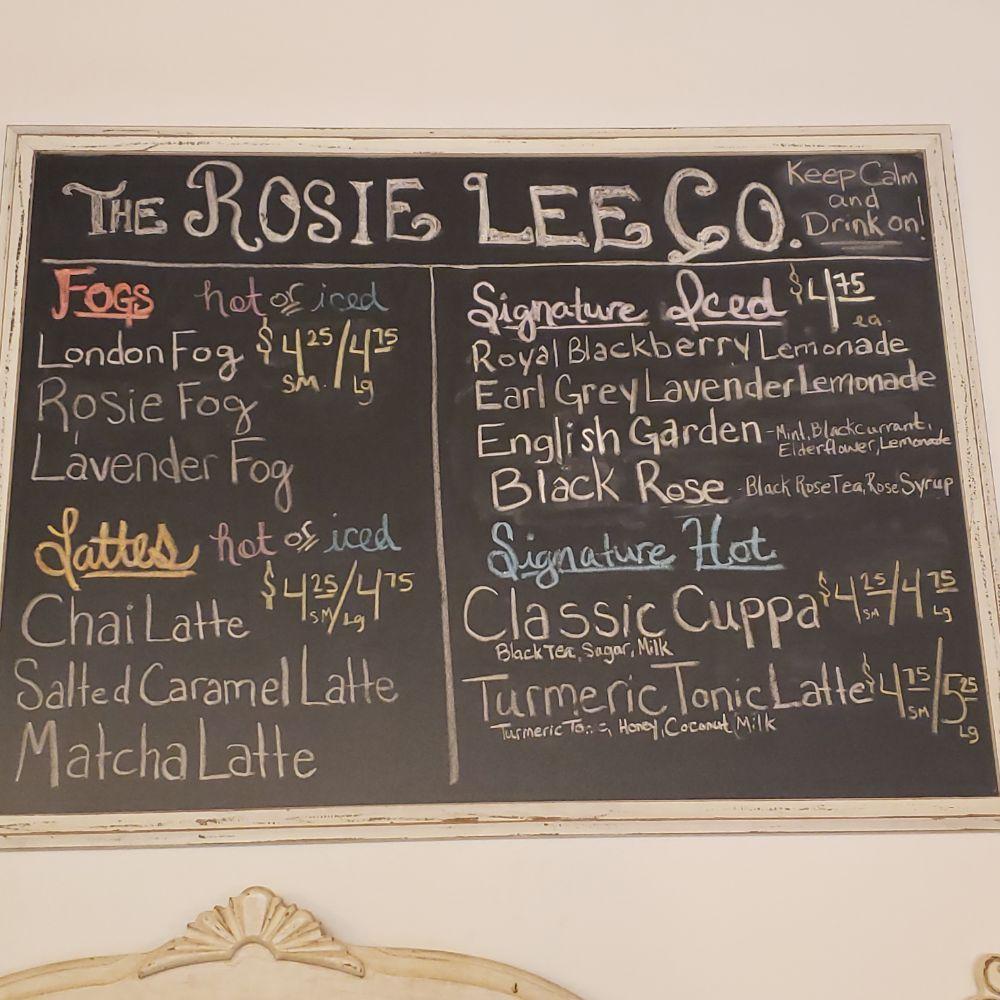 THE ROSIE LEE CO.
Keep Calm
and
Drink on!
FOGS hot or iced
London Fog $4.25/4.75
SM. Lg
Rosie Fog
Lavender Fog
Lattes hot or iced
$4.25/4.75
SM Lg
Chai Latte
Salted Caramel Latte
Matcha Latte
Signature Iced $4.75
ea.
Royal Blackberry Lemonade
Earl Grey Lavender Lemonade
English Garden - Mint, Blackcurrant,
Elderflower, Lemonade
Black Rose - Black Rose Tea, Rose Syrup
Signature Hot
Classic Cuppa $4.25/4.75
SM Lg
Black Tea, Sugar, Milk
Turmeric Tonic Latte $4.75/5.25
SM Lg
Turmeric Honey, Coconut Milk